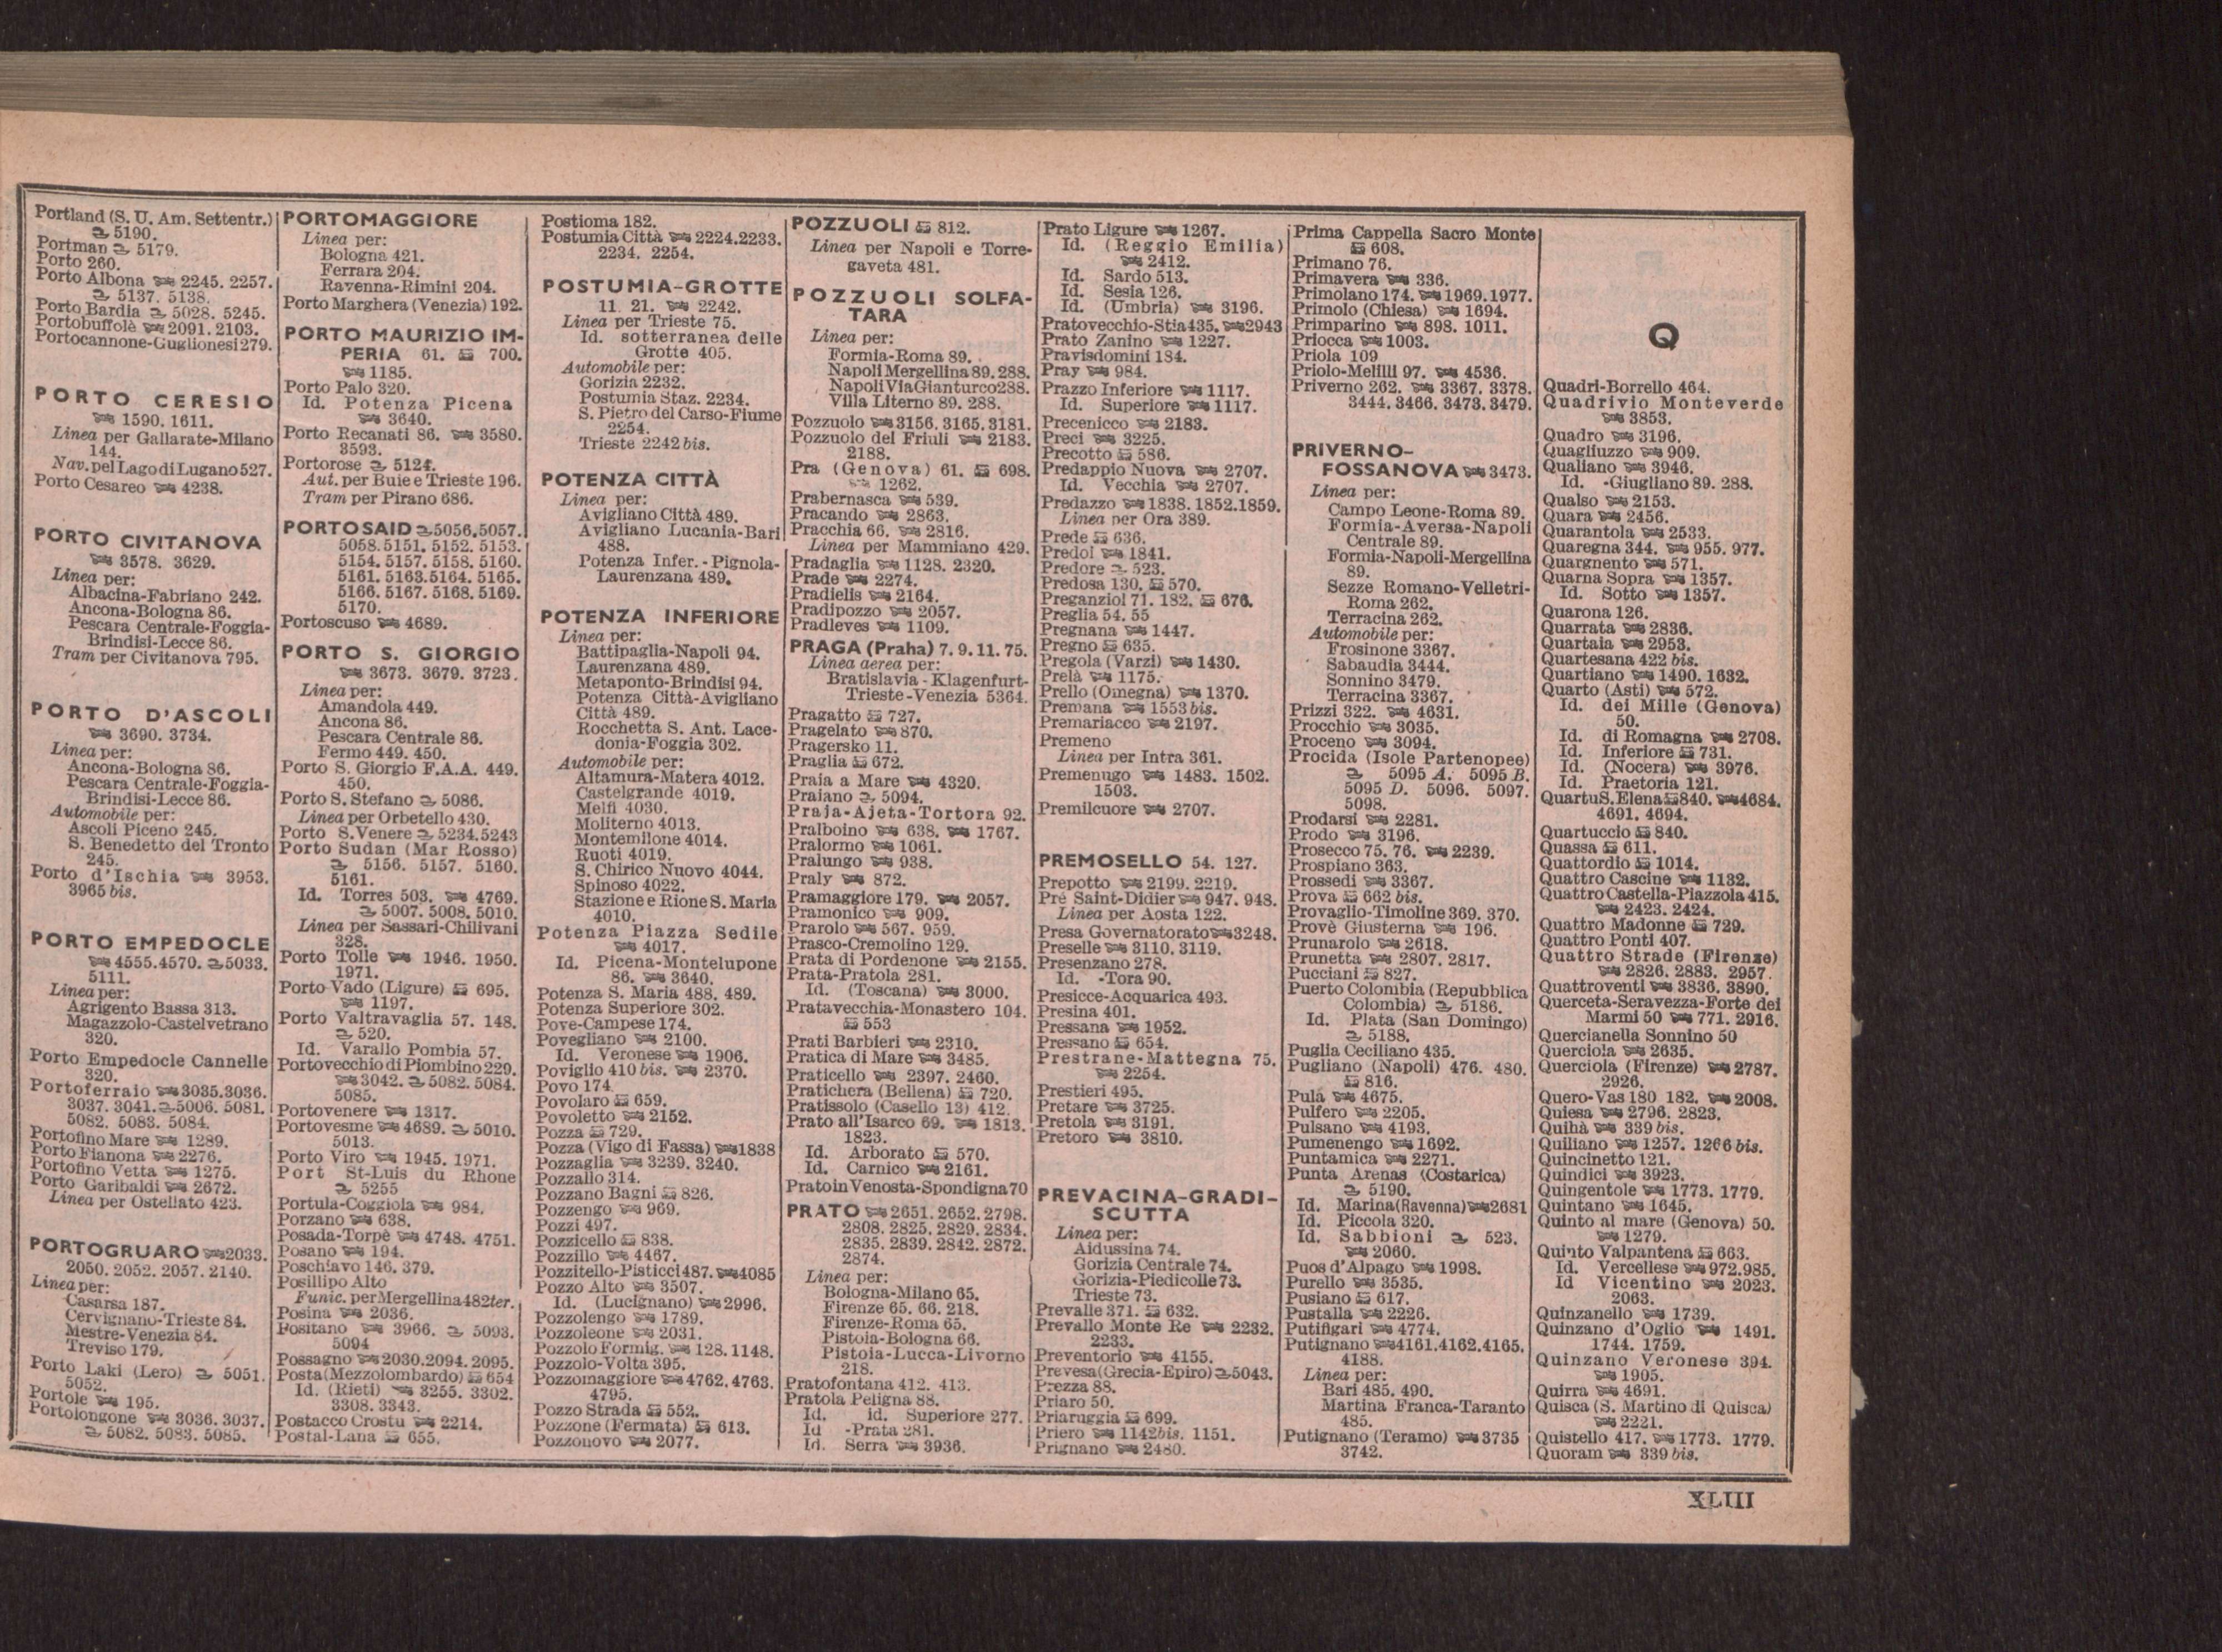 Portland (S. U. Am. Settentr.)
5190.
Portman 5179.
Porto 260.
Porto Albona 2245. 2257.
5137. 5138.
Porto Bardia 5028. 5245.
Portobuffolè 2091. 2103.
Portocannone-Guglionesi 279.
PORTO CERESIO
1590. 1611.
Linea per Gallarate-Milano
144.
Nav. pel Lago di Lugano 527.
Porto Cesareo 4238.
PORTO CIVITANOVA
3578. 3629.
Linea per:
Albacina-Fabriano 242.
Ancona-Bologna 86.
Pescara Centrale-Foggia-
Brindisi-Lecce 86.
Tram per Civitanova 795.
PORTO D'ASCOLI
3690. 3734.
Linea per:
Ancona-Bologna 86.
Pescara Centrale-Foggia-
Brindisi-Lecce 86.
Automobile per:
Ascoli Piceno 245.
S. Benedetto del Tronto
245.
Porto d'Ischia 3953.
3965 bis.
PORTO EMPEDOCLE
4555. 4570. 5033.
5111.
Linea per:
Agrigento Bassa 313.
Magazzolo-Castelvetrano
320.
Porto Empedocle Cannelle
320.
Portoferraio 3035. 3036.
3037. 3041. 5006. 5081.
5082. 5083. 5084.
Portofino Mare 1289.
Porto Fianona 2276.
Portofino Vetta 1275.
Porto Garibaldi 2672.
Linea per Ostellato 423.
PORTOGRUARO 2033.
2050. 2052. 2057. 2140.
Linea per:
Casarsa 187.
Cervignano-Trieste 84.
Mestre-Venezia 84.
Treviso 179.
Porto Laki (Lero) 5051.
5052.
Portole 195.
Portolongone 3036. 3037.
5082. 5083. 5085.
PORTOMAGGIORE
Linea per:
Bologna 421.
Ferrara 204.
Ravenna-Rimini 204.
Porto Marghera (Venezia) 192.
PORTO MAURIZIO IM-
PERIA 61. 700.
1185.
Porto Palo 320.
Id. Potenza Picena
3640.
Porto Recanati 86. 3580.
3593.
Portorose 5124.
Aut. per Buie e Trieste 196.
Tram per Pirano 686.
PORTOSAID 5056. 5057.
5058. 5151. 5152. 5153.
5154. 5157. 5158. 5160.
5161. 5163. 5164. 5165.
5166. 5167. 5168. 5169.
5170.
Portoscuso 4689.
PORTO S. GIORGIO
3673. 3679. 3723.
Linea per:
Amandola 449.
Ancona 86.
Pescara Centrale 86.
Fermo 449. 450.
Porto S. Giorgio F.A.A. 449.
450.
Porto S. Stefano 5086.
Linea per Orbetello 430.
Porto S. Venere 5234. 5243
Porto Sudan (Mar Rosso)
5156. 5157. 5160.
5161.
Id. Torres 503. 4769.
5007. 5008. 5010.
Linea per Sassari-Chilivani
328.
Porto Tolle 1946. 1950.
1971.
Porto Vado (Ligure) 695.
1197.
Porto Valtravaglia 57. 148.
520.
Id. Varallo Pombia 57.
Portovecchio di Piombino 229.
3042. 5082. 5084.
5085.
Portovenere 1317.
Portovesme 4689. 5010.
5013.
Porto Viro 1945. 1971.
Port St-Luis du Rhone
5255
Portula-Coggiola 984.
Porzano 638.
Posada-Torpè 4748. 4751.
Posano 194.
Poschiavo 146. 379.
Posillipo Alto
Funic. per Mergellina 482ter.
Posina 2036.
Positano 3966. 5093.
5094
Possagno 2030. 2094. 2095.
Posta (Mezzolombardo) 654
Id. (Rieti) 3255. 3302.
3308. 3343.
Postacco Crostu 2214.
Postal-Lana 655.
Postioma 182.
Postumia Città 2224. 2233.
2234. 2254.
POSTUMIA-GROTTE
11. 21. 2242.
Linea per Trieste 75.
Id. sotterranea delle
Grotte 405.
Automobile per:
Gorizia 2232.
Postumia Staz. 2234.
S. Pietro del Carso-Fiume
2254.
Trieste 2242 bis.
POTENZA CITTÀ
Linea per:
Avigliano Città 489.
Avigliano Lucania-Bari
488.
Potenza Infer. - Pignola-
Laurenzana 489.
POTENZA INFERIORE
Linea per:
Battipaglia-Napoli 94.
Laurenzana 489.
Metaponto-Brindisi 94.
Potenza Città-Avigliano
Città 489.
Rocchetta S. Ant. Lace-
donia-Foggia 302.
Automobile per:
Altamura-Matera 4012.
Castelgrande 4019.
Melfi 4030.
Moliterno 4013.
Montemilone 4014.
Ruoti 4019.
S. Chirico Nuovo 4044.
Spinoso 4022.
Stazione e Rione S. Maria
4010.
Potenza Piazza Sedile
4017.
Id. Picena-Montelupone
86. 3640.
Potenza S. Maria 488. 489.
Potenza Superiore 302.
Pove-Campese 174.
Povegliano 2100.
Id. Veronese 1906.
Poviglio 410 bis. 2370.
Povo 174.
Povolaro 659.
Povoletto 2152.
Pozza 729.
Pozza (Vigo di Fassa) 1838
Pozzaglia 3239. 3240.
Pozzallo 314.
Pozzano Bagni 826.
Pozzengo 969.
Pozzi 497.
Pozzicello 838.
Pozzillo 4467.
Pozzitello-Pisticci 487. 4085
Pozzo Alto 3507.
Id. (Lucignano) 2996.
Pozzolengo 1789.
Pozzoleone 2031.
Pozzolo Formig. 128. 1148.
Pozzolo-Volta 395.
Pozzomaggiore 4762. 4763.
4795.
Pozzo Strada 552.
Pozzone (Fermata) 613.
Pozzonovo 2077.
POZZUOLI 812.
Linea per Napoli e Torre-
gaveta 481.
POZZUOLI SOLFA-
TARA
Linea per:
Formia-Roma 89.
Napoli Mergellina 89. 288.
Napoli Via Gianturco 288.
Villa Literno 89. 288.
Pozzuolo 3156. 3165. 3181.
Pozzuolo del Friuli 2183.
2188.
Pra (Genova) 61. 698.
1262.
Prabernasca 539.
Pracando 2863.
Pracchia 66. 2816.
Linea per Mammiano 429.
Pradaglia 1128. 2320.
Prade 2274.
Pradielis 2164.
Pradipozzo 2057.
Pradleves 1109.
PRAGA (Praha) 7. 9. 11. 75.
Linea aerea per:
Bratislavia - Klagenfurt-
Trieste-Venezia 5364.
Pragatto 727.
Pragelato 870.
Pragersko 11.
Praglia 672.
Praia a Mare 4320.
Praiano 5094.
Praja-Ajeta-Tortora 92.
Pralboino 638. 1767.
Pralormo 1061.
Pralungo 938.
Praly 872.
Pramaggiore 179. 2057.
Pramonico 909.
Prarolo 567. 959.
Prasco-Cremolino 129.
Prata di Pordenone 2155.
Prata-Pratola 281.
Id. (Toscana) 3000.
Pratavecchia-Monastero 104.
553
Prati Barbieri 2310.
Pratica di Mare 3485.
Praticello 2397. 2460.
Pratichera (Bellena) 720.
Pratissolo (Casello 13) 412.
Prato all'Isarco 69. 1813.
1823.
Id. Arborato 570.
Id. Carnico 2161.
Prato in Venosta-Spondigna 70
PRATO 2651. 2652. 2798.
2808. 2825. 2829. 2834.
2835. 2839. 2842. 2872.
2874.
Linea per:
Bologna-Milano 65.
Firenze 65. 66. 218.
Firenze-Roma 65.
Pistoia-Bologna 66.
Pistoia-Lucca-Livorno
218.
Pratofontana 412. 413.
Pratola Peligna 88.
Id. id. Superiore 277.
Id -Prata 281.
Id. Serra 3936.
Prato Ligure 1267.
Id. (Reggio Emilia)
2412.
Id. Sardo 513.
Id. Sesia 126.
Id. (Umbria) 3196.
Pratovecchio-Stia 435. 2943
Prato Zanino 1227.
Pravisdomini 184.
Pray 984.
Prazzo Inferiore 1117.
Id. Superiore 1117.
Precenicco 2183.
Preci 3225.
Precotto 586.
Predappio Nuova 2707.
Id. Vecchia 2707.
Predazzo 1838. 1852. 1859.
Linea per Ora 389.
Prede 636.
Predoi 1841.
Predore 523.
Predosa 130. 570.
Preganziol 71. 182. 676.
Preglia 54. 55
Pregnana 1447.
Pregno 635.
Pregola (Varzi) 1430.
Prelà 1175.
Prello (Omegna) 1370.
Premana 1553 bis.
Premariacco 2197.
Premeno
Linea per Intra 361.
Premenugo 1483. 1502.
1503.
Premilcuore 2707.
PREMOSELLO 54. 127.
Prepotto 2199. 2219.
Pré Saint-Didier 947. 948.
Linea per Aosta 122.
Presa Governatorato 3248.
Preselle 3110. 3119.
Presenzano 278.
Id. -Tora 90.
Presicce-Acquarica 493.
Presina 401.
Pressana 1952.
Pressano 654.
Prestrane-Mattegna 75.
2254.
Prestieri 495.
Pretare 3725.
Pretola 3191.
Pretoro 3810.
PREVACINA-GRADI-
SCUTTA
Linea per:
Aidussina 74.
Gorizia Centrale 74.
Gorizia-Piedicolle 73.
Trieste 73.
Prevalle 371. 632.
Prevallo Monte Re 2232.
2233.
Preventorio 4155.
Prevesa (Grecia-Epiro) 5043.
Prezza 88.
Priaro 50.
Priaruggia 699.
Priero 1142bis. 1151.
Prignano 2480.
Prima Cappella Sacro Monte
608.
Primano 76.
Primavera 336.
Primolano 174. 1969. 1977.
Primolo (Chiesa) 1694.
Primparino 898. 1011.
Priocca 1003.
Priola 109
Priolo-Melilli 97. 4536.
Priverno 262. 3367. 3378.
3444. 3466. 3473. 3479.
PRIVERNO-
FOSSANOVA 3473.
Linea per:
Campo Leone-Roma 89.
Formia-Aversa-Napoli
Centrale 89.
Formia-Napoli-Mergellina
89.
Sezze Romano-Velletri-
Roma 262.
Terracina 262.
Automobile per:
Frosinone 3367.
Sabaudia 3444.
Sonnino 3479.
Terracina 3367.
Prizzi 322. 4631.
Procchio 3035.
Proceno 3094.
Procida (Isole Partenopee)
5095 A. 5095 B.
5095 D. 5096. 5097.
5098.
Prodarsi 2281.
Prodo 3196.
Prosecco 75. 76. 2239.
Prospiano 363.
Prossedi 3367.
Prova 662 bis.
Provaglio-Timoline 369. 370.
Provè Giusterna 196.
Prunarolo 2618.
Prunetta 2807. 2817.
Pucciani 827.
Puerto Colombia (Repubblica
Colombia) 5186.
Id. Plata (San Domingo)
5188.
Puglia Ceciliano 435.
Pugliano (Napoli) 476. 480.
816.
Pula 4675.
Pulfero 2205.
Pulsano 4193.
Pumenengo 1692.
Puntamica 2271.
Punta Arenas (Costarica)
5190.
Id. Marina (Ravenna) 2681
Id. Piccola 320.
Id. Sabbioni 523.
2060.
Puos d'Alpago 1998.
Purello 3535.
Pusiano 617.
Pustalla 2226.
Putifigari 4774.
Putignano 4161. 4162. 4165.
4188.
Linea per:
Bari 485. 490.
Martina Franca-Taranto
485.
Putignano (Teramo) 3735
3742.
Q
Quadri-Borrello 464.
Quadrivio Monteverde
3853.
Quadro 3196.
Quagliuzzo 909.
Qualiano 3946.
Id. -Giugliano 89. 288.
Qualso 2153.
Quara 2456.
Quarantola 2533.
Quaregna 344. 955. 977.
Quargnento 571.
Quarna Sopra 1357.
Id. Sotto 1357.
Quarona 126.
Quarrata 2836.
Quartaia 2953.
Quartesana 422 bis.
Quartiano 1490. 1632.
Quarto (Asti) 572.
Id. dei Mille (Genova)
50.
Id. di Romagna 2708.
Id. Inferiore 731.
Id. (Nocera) 3976.
Id. Praetoria 121.
Quartu S. Elena 840. 4684.
4691. 4694.
Quartuccio 840.
Quassa 611.
Quattordio 1014.
Quattro Cascine 1132.
Quattro Castella-Piazzola 415.
2423. 2424.
Quattro Madonne 729.
Quattro Ponti 407.
Quattro Strade (Firenze)
2826. 2883. 2957.
Quattroventi 3836. 3890.
Querceta-Seravezza-Forte dei
Marmi 50 771. 2916.
Quercianella Sonnino 50
Querciola 2635.
Querciola (Firenze) 2787.
2926.
Quero-Vas 180 182. 2008.
Quiesa 2796. 2823.
Quihà 339 bis.
Quiliano 1257. 1266 bis.
Quincinetto 121.
Quindici 3923.
Quingentole 1773. 1779.
Quintano 1645.
Quinto al mare (Genova) 50.
1279.
Quinto Valpantena 663.
Id. Vercellese 972. 985.
Id Vicentino 2023.
2063.
Quinzanello 1739.
Quinzano d'Oglio 1491.
1744. 1759.
Quinzano Veronese 394.
1905.
Quirra 4691.
Quisca (S. Martino di Quisca)
2221.
Quistello 417. 1773. 1779.
Quoram 339 bis.
XLIII